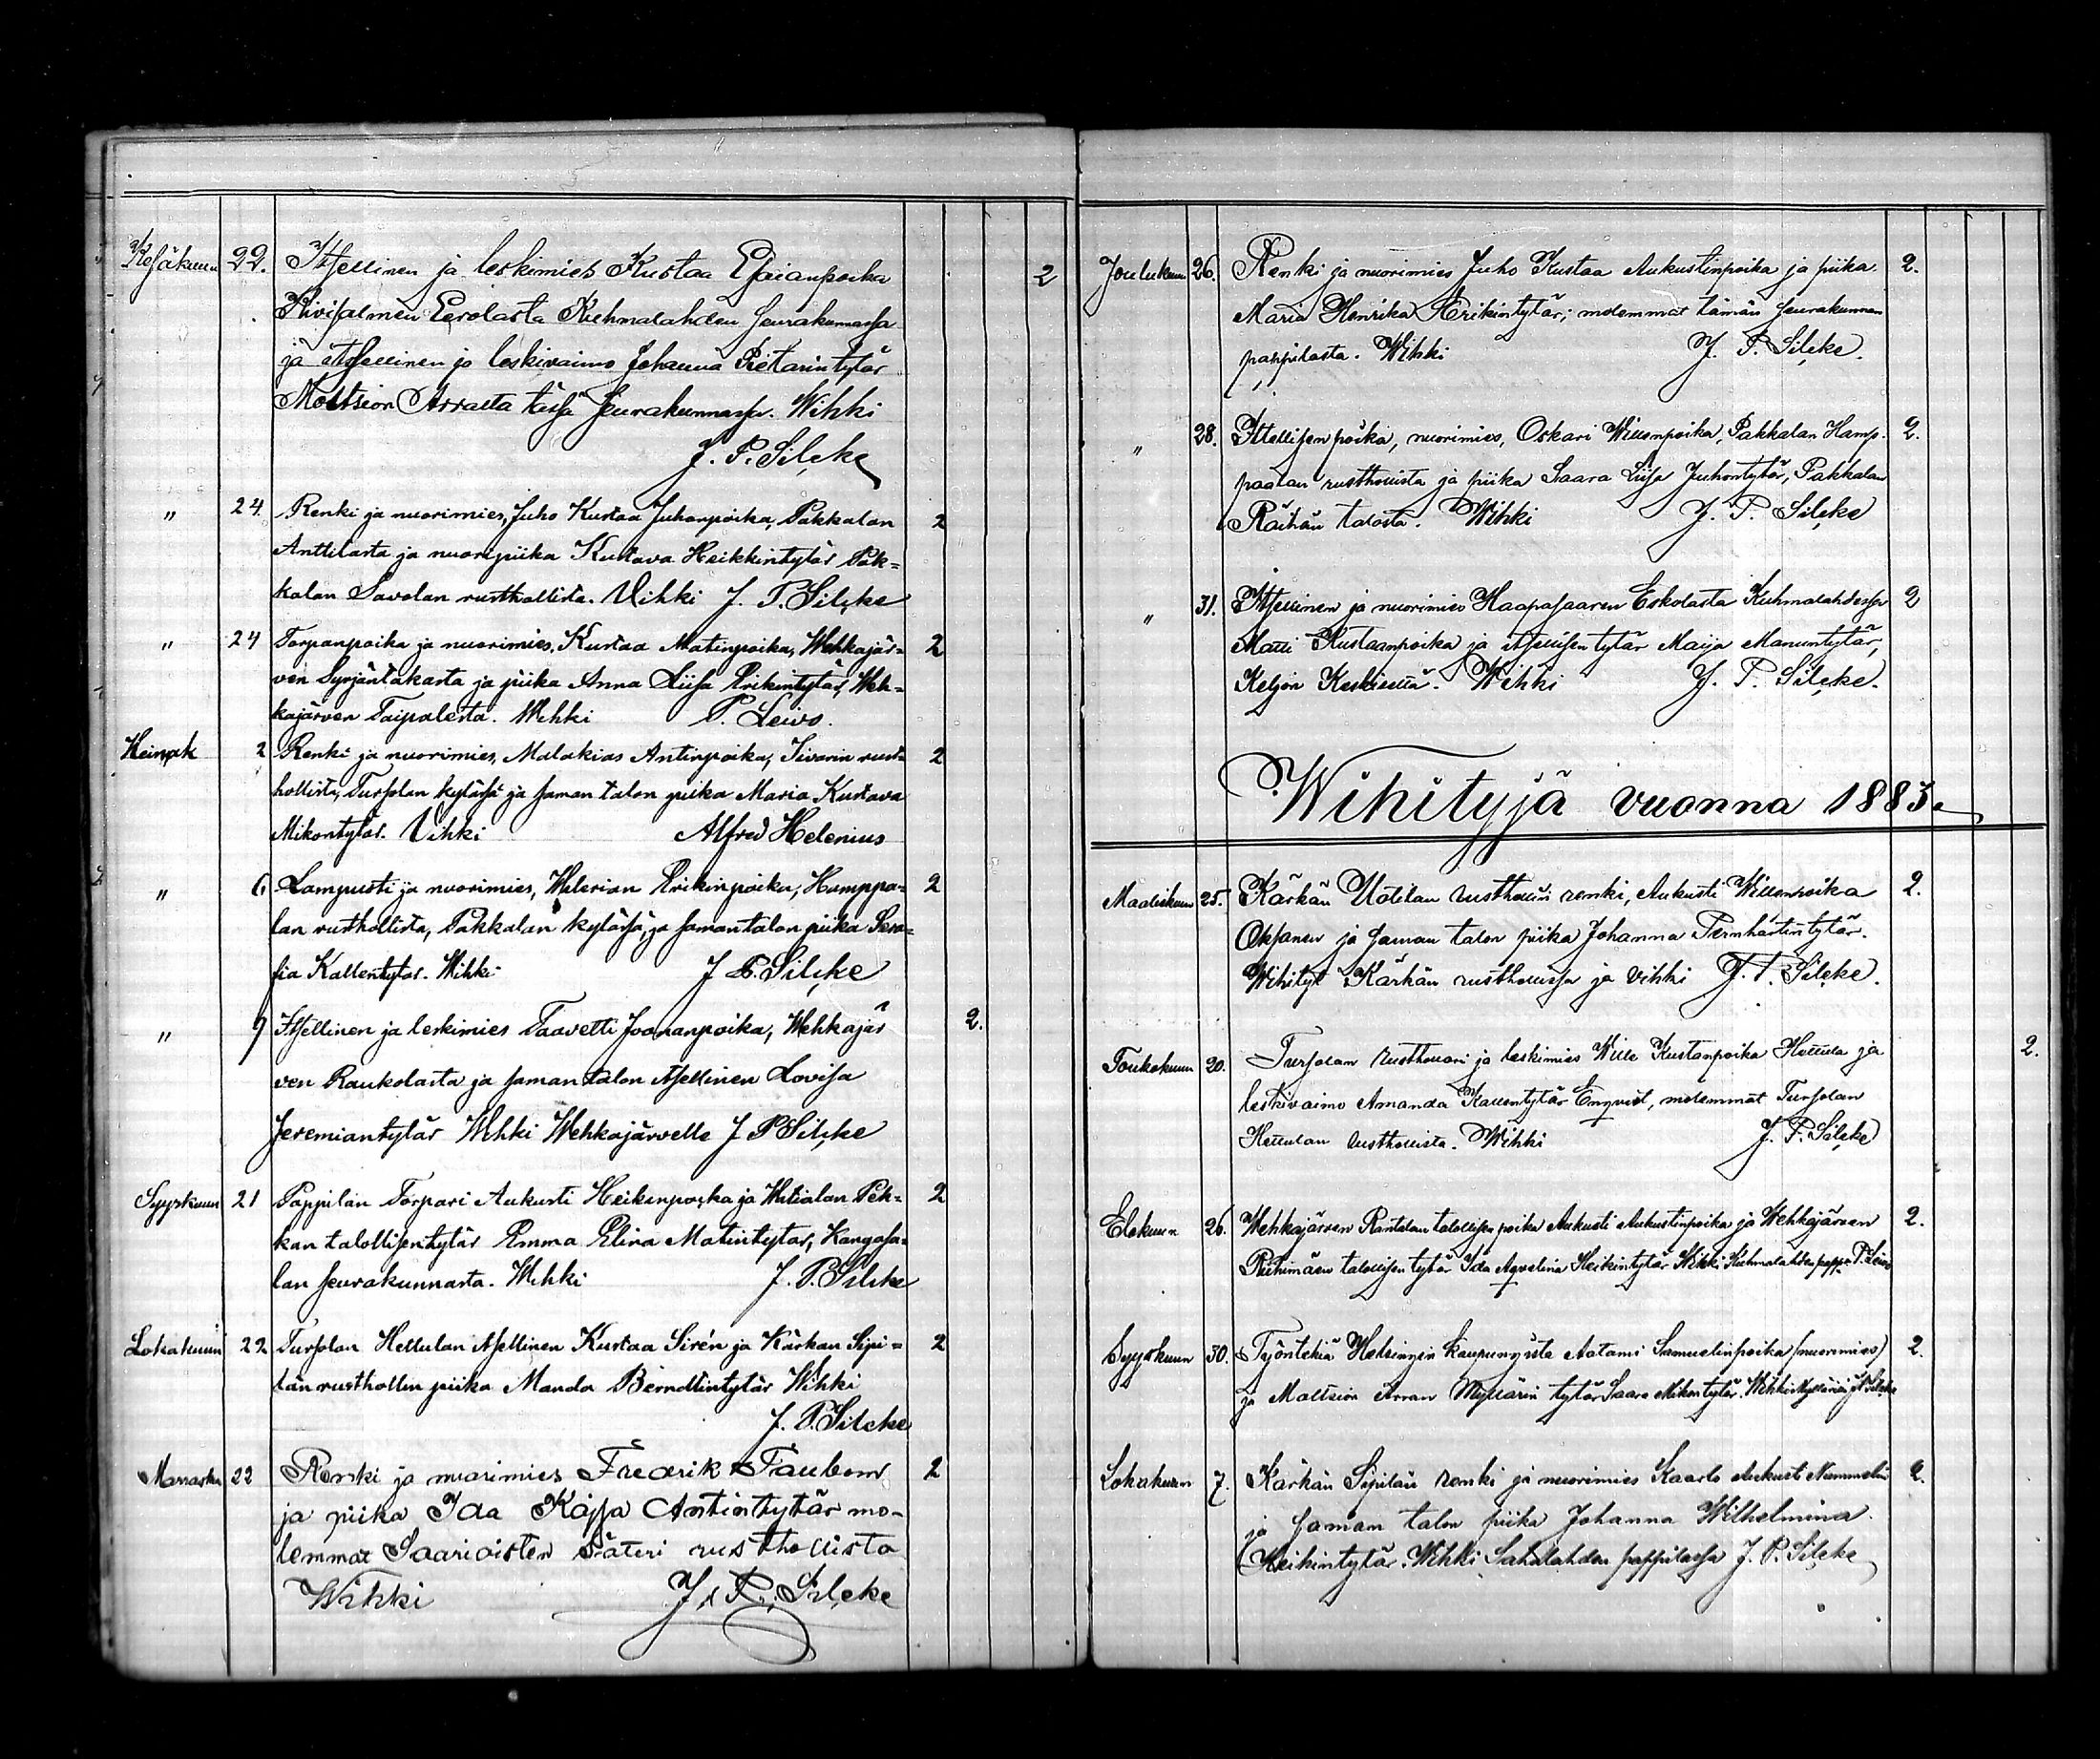 Kesäkuun 22. Itsellinen ja leskimies Kustaa Esaianpoika 2
Kivisalmen Eerolasta Kuhmalahden seurakunnassa
ja itsellinen ja leskivaimo Johanna Pietarintytär
Moltsion Arrasta tässä seurakunnassa. Wihki
J. P. Silcke
" 24 Renki ja nuorimies, Juho Kustaa Juhonpoika, Pakkalan 2
Anttilasta ja nuoripiika Kustava Heikkintytär Pak=
kalan Savolan rusthollista. Vihki J. P. Silcke
" 24 Torpanpoika ja nuorimies, Kustaa Matinpoika, Wehkajär= 2
ven Syrjäntakasta ja piika Anna Liisa Erikintytär, Weh=
kajärven Taipaleesta. Wihki P. Leivo.
Heinäk 2 Renki ja nuorimies, Malakias Antinpoika, Iivarin rust= 2
hollista, Tursolan kylässä ja saman talon piika Maria Kustava
Mikontytär. Vihki Alfred Helenius
" 6 Lampuoti ja nuorimies, Wilerian Erikinpoika, Hamppa= 2
lan rusthollista, Pakkalan kylässä, ja saman talon piika Sera=
fia Kallentytär. Wihki J. P. Silcke
" 9 Itsellinen ja leskimies Taavetti Joonanpoika, Wehkajär 2.
ven Raukolasta ja saman talon itsellinen Lovisa
Jeremiantytär Wihki Wehkajärvelle J P Silcke
Syyskuun 21 Pappilan Torpari Aukusti Heikinpoika ja Wätialan Pek= 2
kan talollisentytär Emma Elina Matintytär, Kangasa=
lan seurakunnasta. Wihki J. P. Silcke
Lokakuun 22 Tursolan Hellulan itsellinen Kustaa Sirén ja Kärkän Sipi= 2
län rusthollin piika Manda Berndtintytär Wihki
J. P. Silcke
Marrasku 22 Renki ja nuorimies Fredrik Taubom 2
ja piika Ida Kajsa Antintytär mo-
lemmat Saarioisten Säteri rusthollista
Wihki J. P. Silcke
Joulukuun 26. Renki ja nuorimies Juho Kustaa Aukustinpoika ja piika 2.
Maria Henrika Erikintytär; molemmat tämän seurakunnan
pappilasta. Wihki J. P. Silcke.
" 28. Itsellisen poika, nuorimies, Oskari Willenpoika, Pakkalan Hamp- 2.
paalan rusthollista ja piika Saara Liisa Juhontytär, Pakkalan
Räihän talosta. Wihki J. P. Silcke
" 31. Itsellinen ja nuorimies Haapasaaren Eskolasta Kuhmalahdessa 2
Matti Kustaanpoika ja itsellisen tytär Maija Manuntytär,
Keljon Keskiseltä. Wihki J. P. Silcke.
Wihityjä vuonna 1883.
Maaliskuun 25. Kärkän Uotilan rusthollin renki, Aukusti Willenpoika 2.
Oksanen ja saman talon piika Johanna Pernhartintytär.
Wihityt Kärkän rusthollissa ja vihki J. P. Silcke.
Toukokuun 20. Tursolan rusthollari ja leskimies Wille Kustanpoika Hellula ja 2.
leskivaimo Amanda Kallentytär Enqvist, molemmat Tursolan
Hellulan rusthollista. Wihki J. P. Silcke
Elokuun 26. Wehkajärven Rantalan talollisen poika Aukusti Aukustinpoika ja Wehkajärven 2.
Riihimäen talollisen tytär Ida Aqvelina Heikintytär Wihki Kuhmalahden pappi P. Leivo
Syyskuun 30. Työntekiä Helsingin kaupungista Aatami Samuelinpoika (nuorimies) 2.
ja Moltsion Arran Myllärin tytär Saara Mikontytär. Wihki Myllärissä J P Silcke
Lokakuun 7. Kärkän Sipilän renki ja nuorimies Kaarlo Aukusti Nummelin 2.
ja saman talon piika Johanna Wilhelmina
Heikintytär. Wihki Sahalahden pappilassa J. P. Silcke